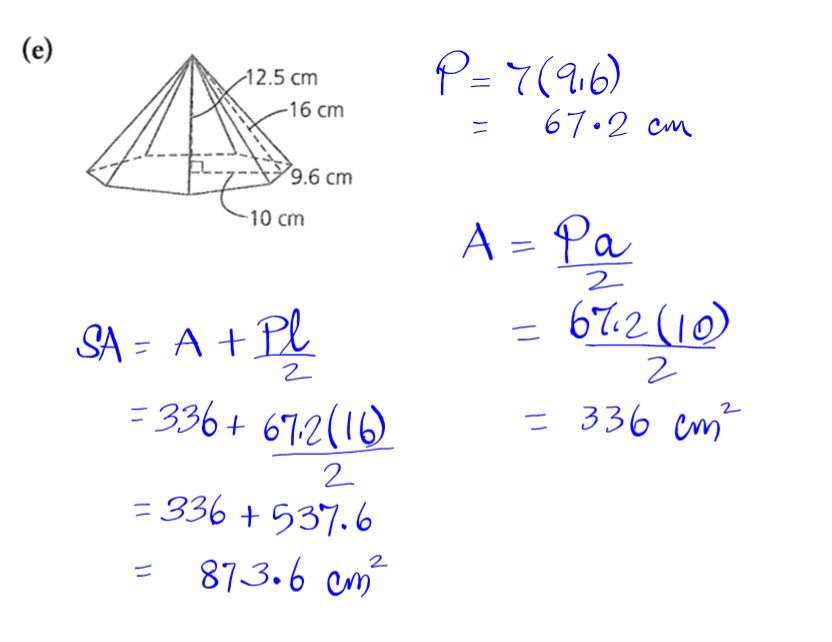 (e)
12.5 cm
16 cm
9.6 cm
10 cm
P = 7(9.6)
= 67.2 cm
A = Pa/2
= 67.2(10)/2
= 336 cm²
SA = A + Pl/2
= 336 + 67.2(16)/2
= 336 + 537.6
= 873.6 cm²